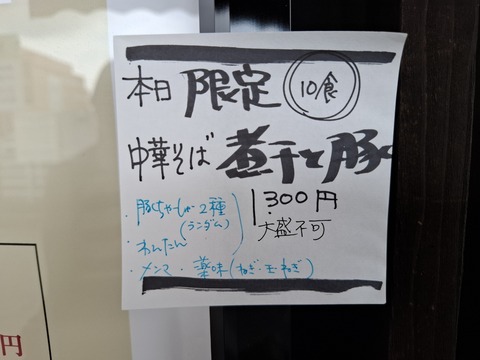 本日 限定 10食
中華そば 煮干と豚
・豚ちゃーしゅー2種
(ランダム)
・わんたん
・メンマ・薬味(ねぎ・玉ねぎ)
1,300円
大盛不可
円